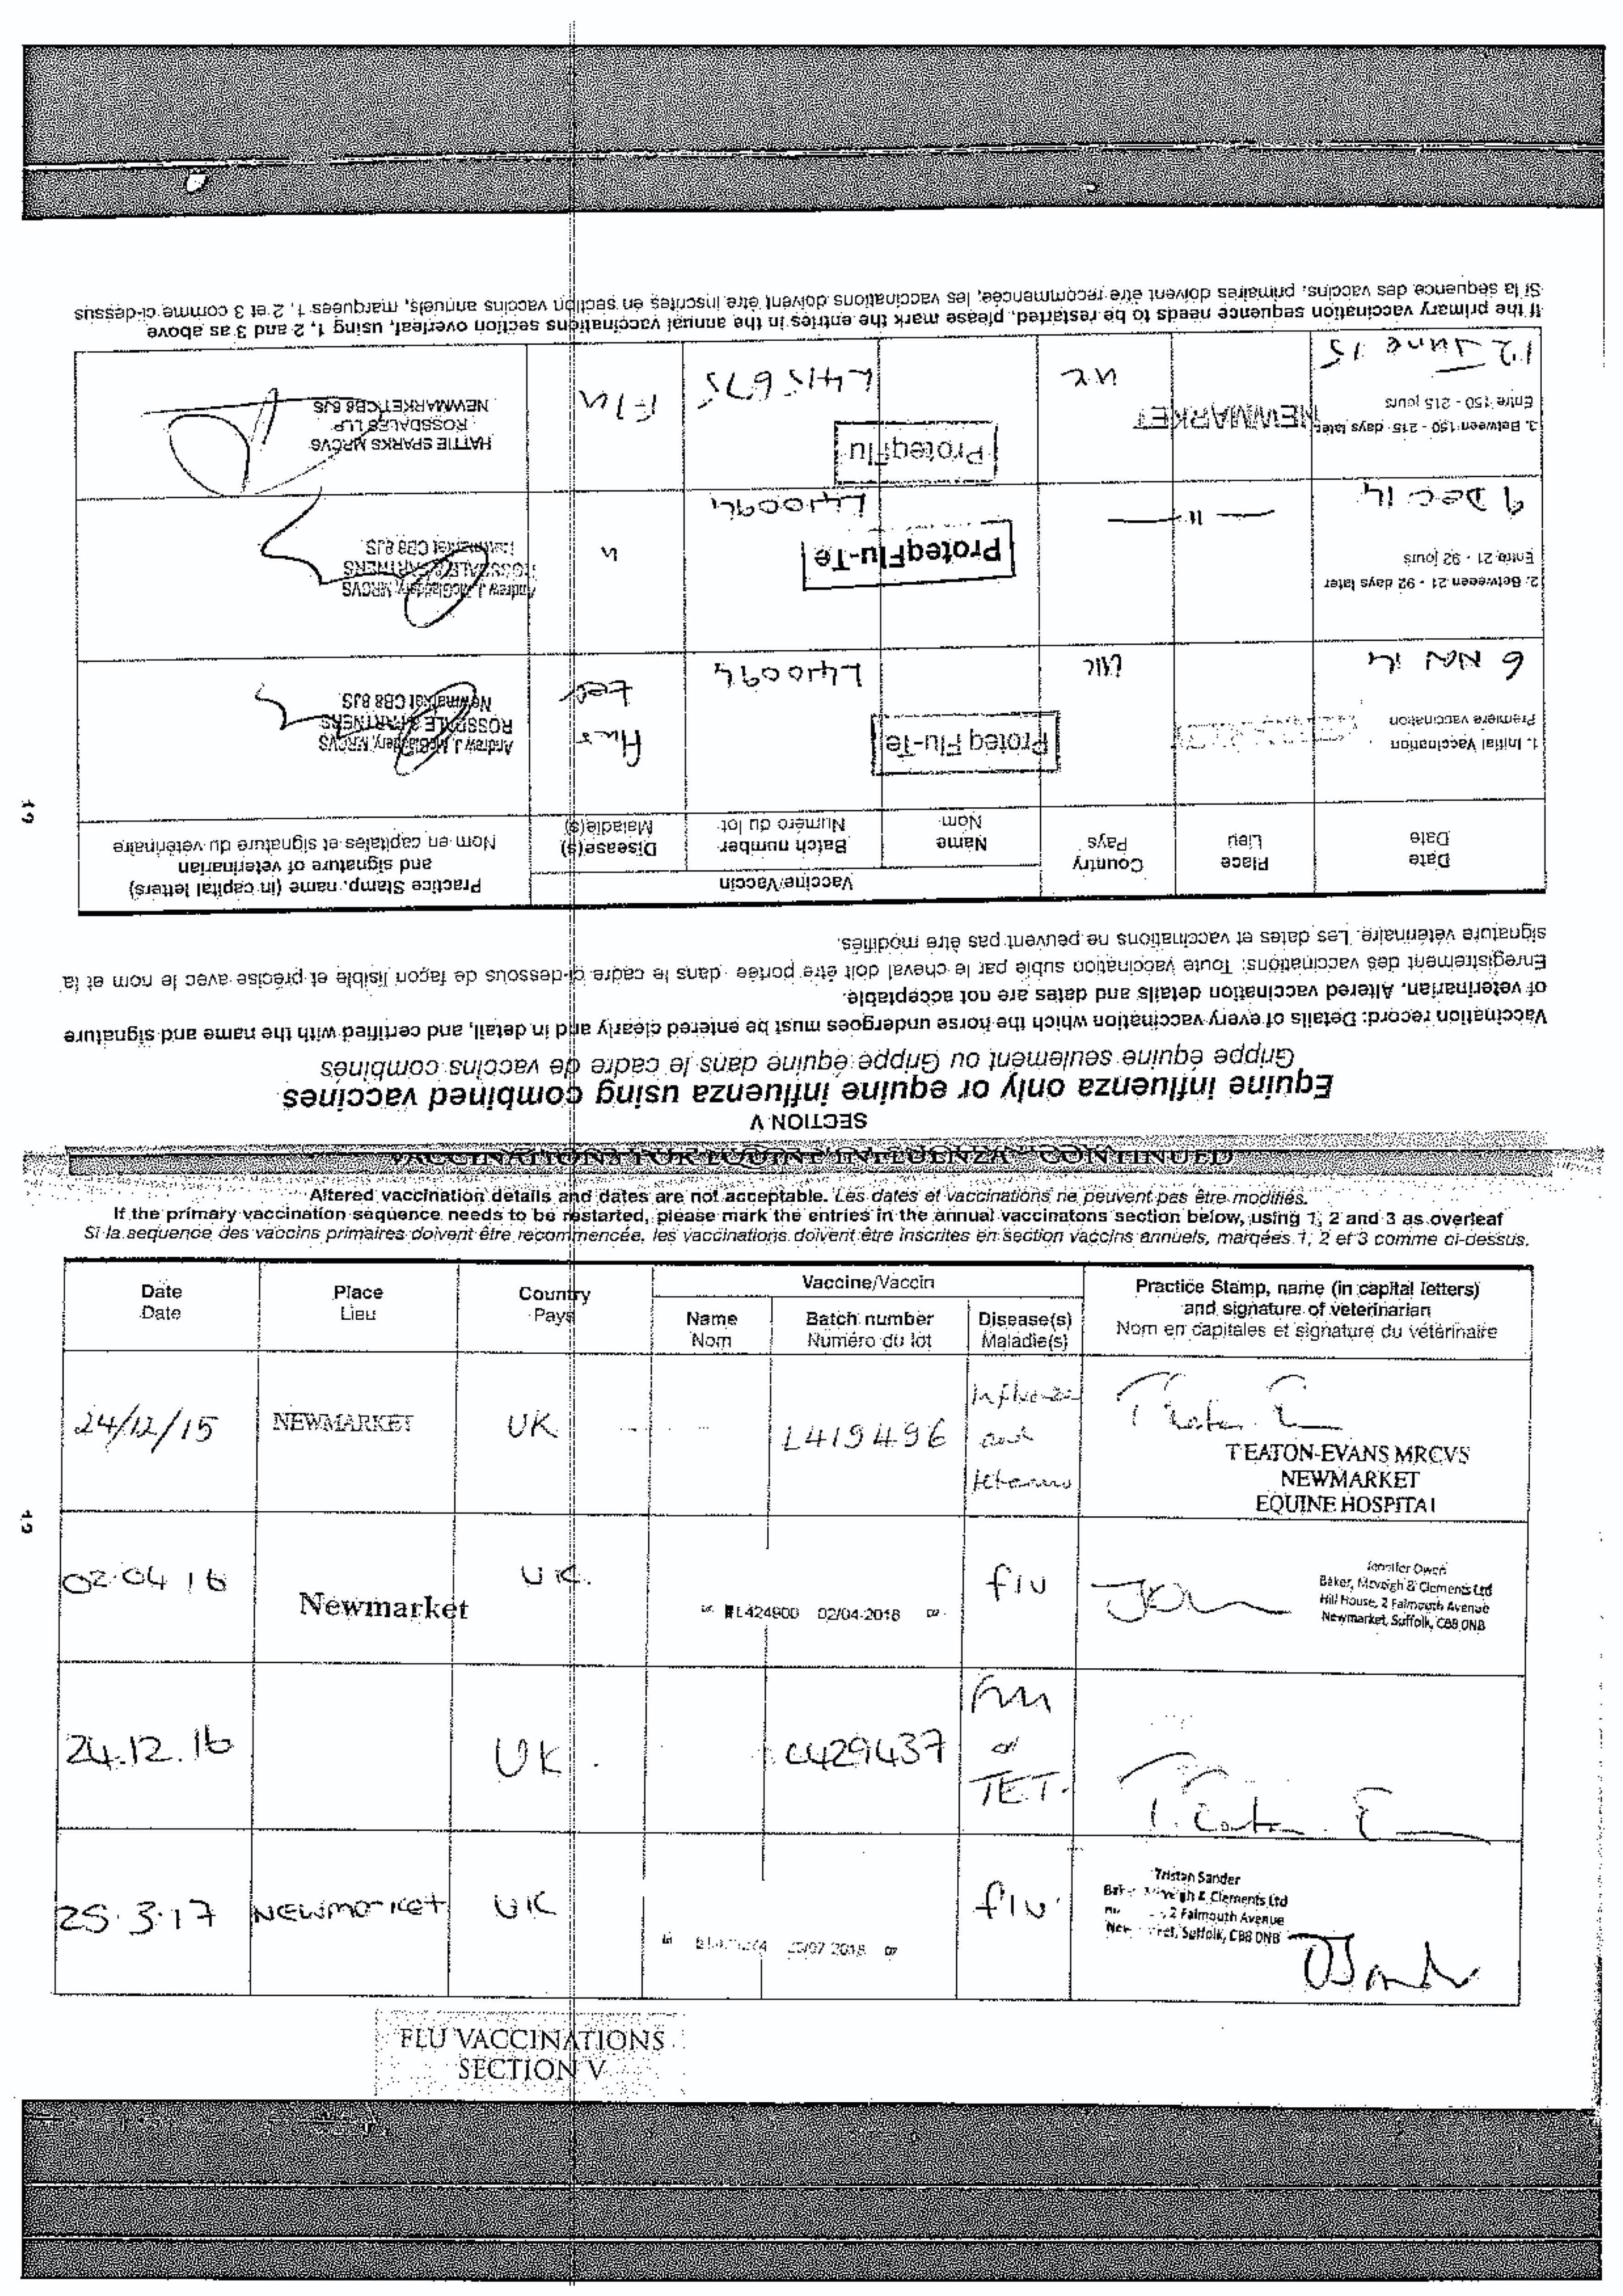 SECTION V
Equine influenza only or equine influenza using combined vaccines
Grippe équine seulement ou Grippe équine dans le cadre de vaccins combinés
Vaccination record: Details of every vaccination which the horse undergoes must be entered clearly and in detail, and certified with the name and signature
of veterinarian. Altered vaccination details and dates are not acceptable.
Enregistrement des vaccinations: Toute vaccination subie par le cheval doit être portée dans le cadre ci-dessous de façon lisible et précise avec le nom et la
signature vétérinaire. Les dates et vaccinations ne peuvent pas être modifiés.
Date
Date
Place
Lieu
Country
Pays
Vaccine/Vaccin
Name
Nom
Batch number
Numéro du lot
Disease(s)
Maladie(s)
Practice Stamp, name (in capital letters)
and signature of veterinarian
Nom en capitales et signature du vétérinaire
19
1. Initial Vaccination
Première vaccination
6 NOV 14
UK
ProteqFlu-Te
L40094
Flu +
Tet
Andrew J. McGladdery, MRCVS
ROSSDALE & PARTNERS
Newmarket CB8 8JS
2. Betweeen 21 - 92 days later
Entre 21 - 92 jours
9 DEC 14
— 11 —
ProteqFlu-Te
L40094
"
Andrew J. McGladdery, MRCVS
ROSSDALE & PARTNERS
Newmarket CB8 8JS
3. Between 150 - 215 days later
Entre 150 - 215 jours
12 June 15
NEWMARKET
UK
ProteqFlu
L415675
Flu
HATTIE SPARKS MRCVS
ROSSDALES LLP
NEWMARKET CB8 8JS
If the primary vaccination sequence needs to be restarted, please mark the entries in the annual vaccinations section overleaf, using 1, 2 and 3 as above
Si la séquence des vaccins, primaires doivent être recommencée, les vaccinations doivent être inscrites en section vaccins annuels, marquées 1, 2 et 3 comme ci-dessus
VACCINATIONS FOR EQUINE INFLUENZA - CONTINUED
Altered vaccination details and dates are not acceptable. Les dates et vaccinations ne peuvent pas être modifiés.
If the primary vaccination sequence needs to be restarted, please mark the entries in the annual vaccinatons section below, using 1, 2 and 3 as overleaf
Si la sequence des vaccins primaires doivent être recommencée, les vaccinations doivent être inscrites en section vaccins annuels, marqées 1, 2 et 3 comme ci-dessus.
Date
Date
Place
Lieu
Country
Pays
Vaccine/Vaccin
Name
Nom
Batch number
Numéro du lot
Disease(s)
Maladie(s)
Practice Stamp, name (in capital letters)
and signature of veterinarian
Nom en capitales et signature du vétérinaire
19
24/12/15
NEWMARKET
UK
L419496
Influenza
and
tetanus
T EATON-EVANS MRCVS
NEWMARKET
EQUINE HOSPITAL
02.04 16
Newmarket
UK.
L424900 02/04-2018
flu
Jennifer Owen
Baker, Mcveigh & Clements Ltd
Hill House, 2 Falmouth Avenue
Newmarket, Suffolk, CB8 0NB
24.12.16
UK.
L429437
Flu
&
TET.
25.3.17
Newmarket
UK
07 2018
flu
Tristan Sander
& Clements Ltd
2 Falmouth Avenue
Suffolk, CB8 0NB
FLU VACCINATIONS
SECTION V